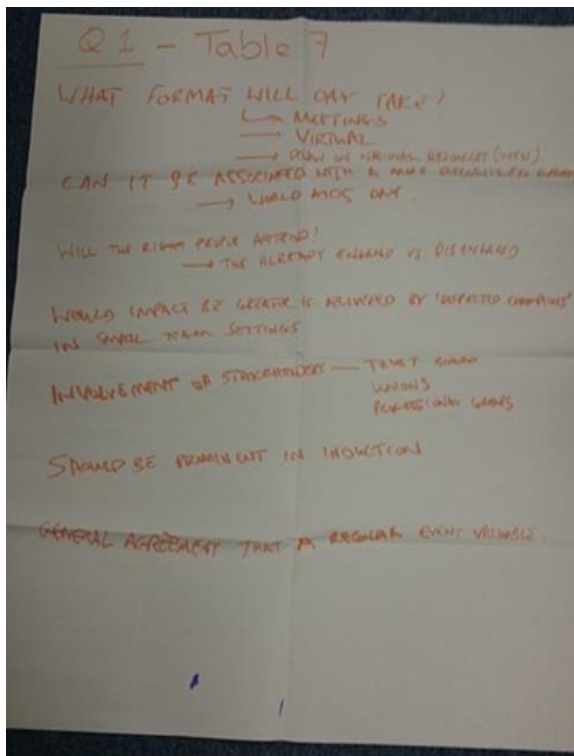 Q1 - Table 7
WHAT FORMAT WILL DAY TAKE?
→ MEETINGS
→ VIRTUAL
→ DRAW ON NATIONAL RESOURCES (WHEN)
CAN IT BE ASSOCIATED WITH A MORE RECOGNISED
→ WORLD AIDS DAY
WILL THE RIGHT PEOPLE ATTEND?
→ THE ALREADY ENGAGED VS DISENGAGED
WOULD IMPACT BE GREATER IF DELIVERED BY 'RESPECTED CHAMPIONS'
IN SMALL TEAM SETTINGS
INVOLVEMENT OF STAKEHOLDERS — TRUST BOARD
UNIONS
PROFESSIONAL GROUPS
SHOULD BE PROMINENT IN INDUCTION
GENERAL AGREEMENT THAT A REGULAR EVENT VALUABLE.